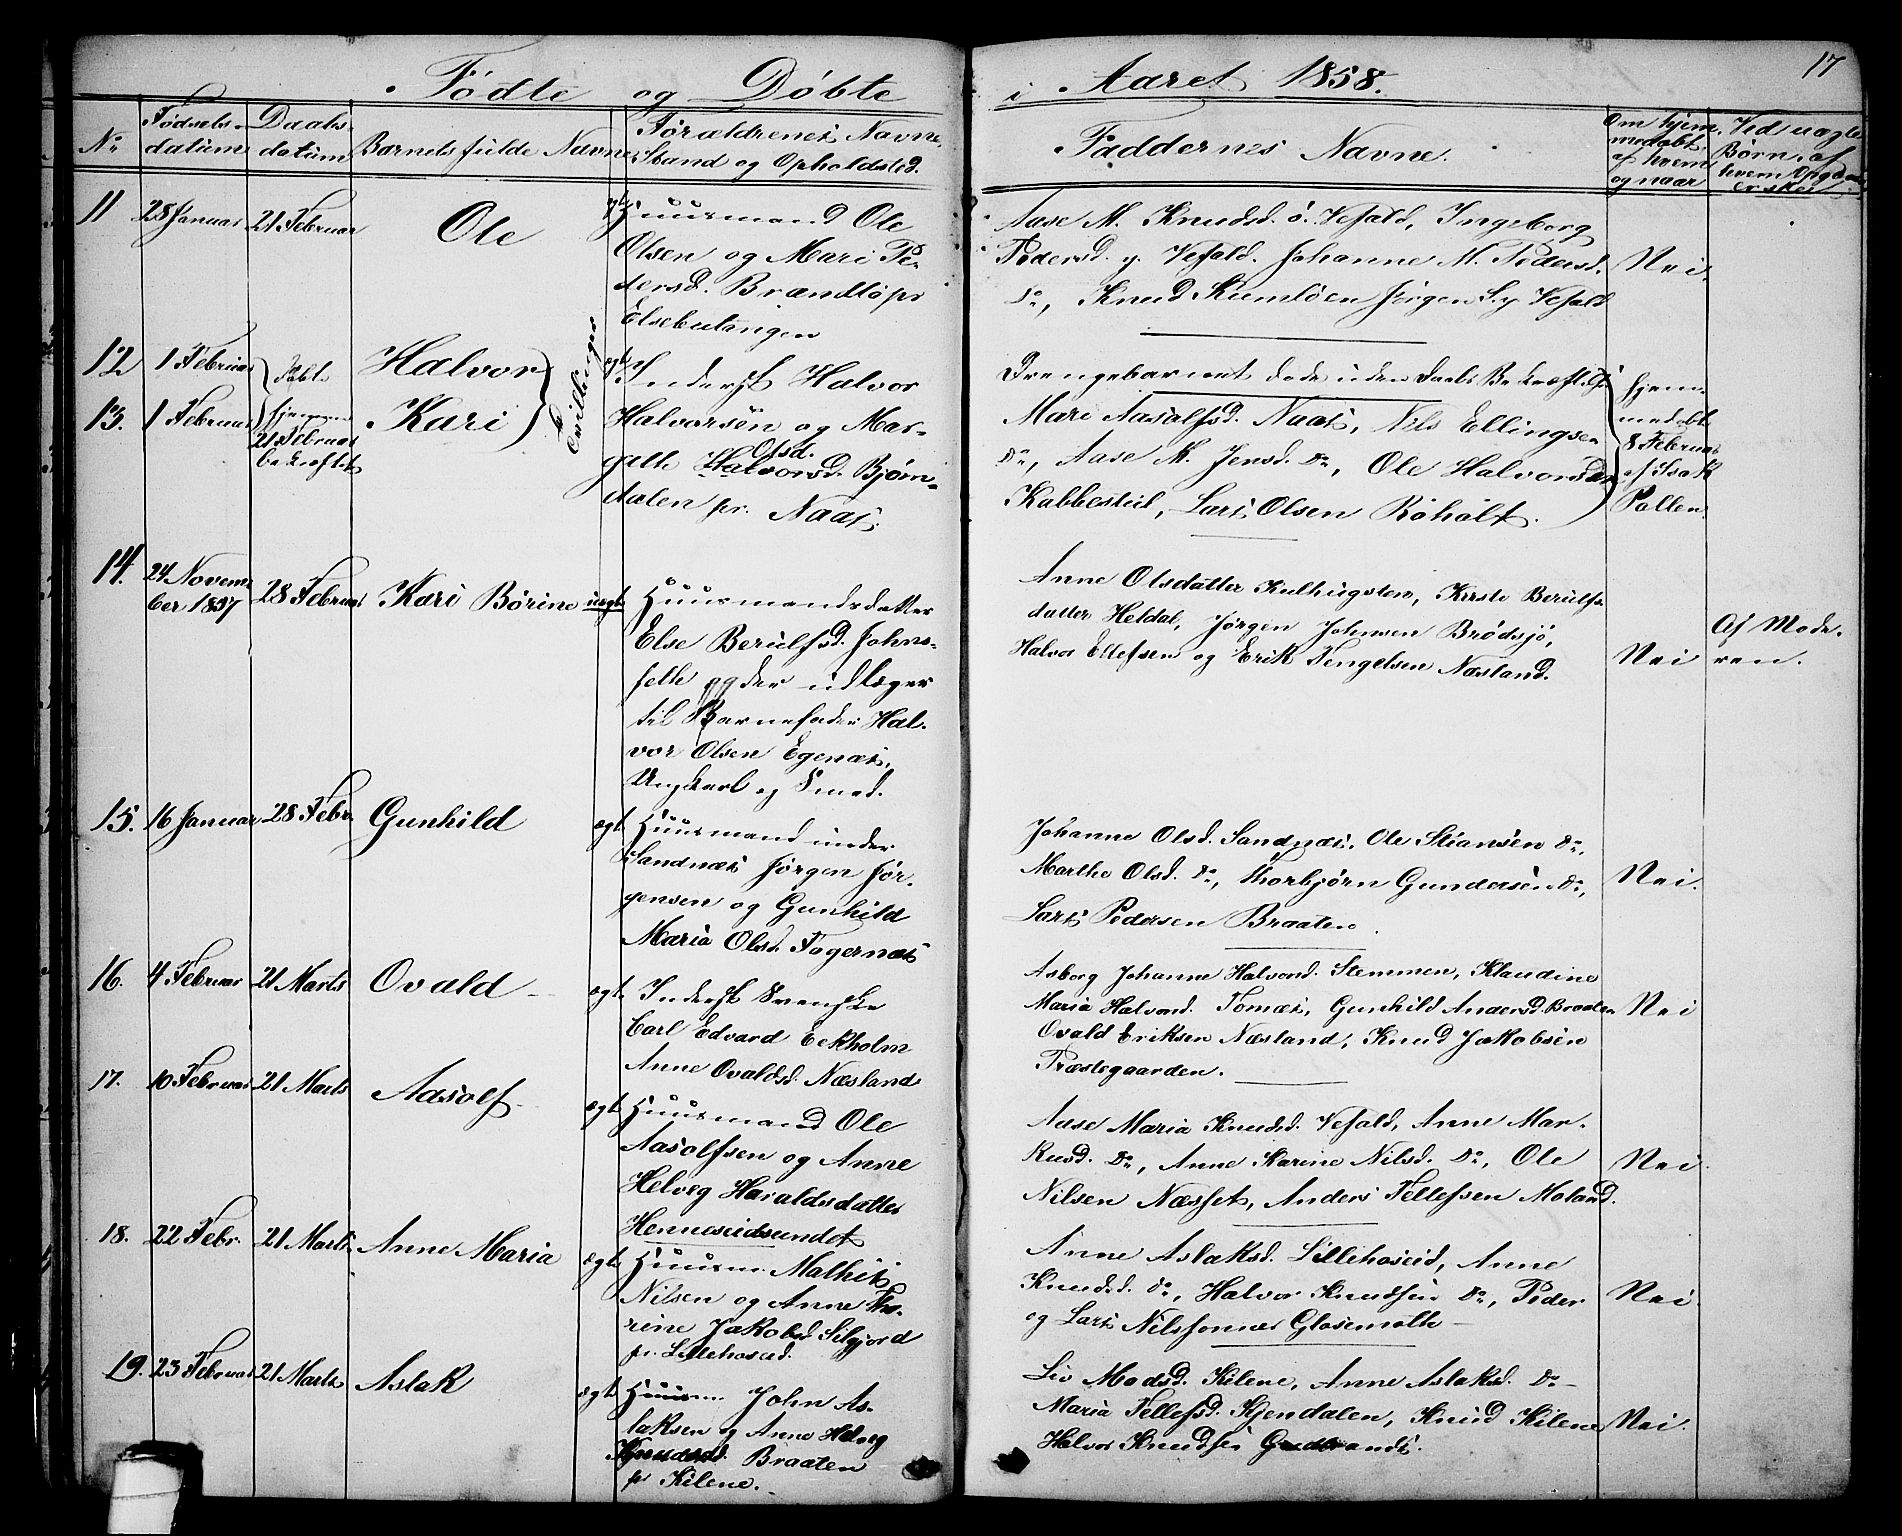 Fødte og Døbte i Aaret 1858. 17
No
Fødsels-
datum
Daabs-
datum
Barnets fulde Navn
Forældrenes Navne
Stand og Opholdsted.
Faddernes Navne.
Om hjem-
medøbt
af hvem
og naar
Ved uægte
Børn, af
hvem Opgi
11
28 Januar
21 Februar
Ole
ægt
Huusmand Ole
Olsen og Mari Pe-
dersd. Brændtø pr
Elsebutangen
Aase M. Knudsd. ö. Vefald, Ingeborg
Pedersd. y. Vefald. Johanne M. Pedersd.
do, Knud Jørgen S. y Vefald
Nei.
12
1 Februar
13.
1 Februar
Døbt
hjemme
21 Februar
bekræftet
Halvor
Kari
Tvillinger
ægt
Inderst Halvor
Halvorsen og Mar-
gethe Halvorsd. Olsd. Bjørn-
dalen pr. Naas.
Drengebarnet døde uden Daabs Bekræftelse
Mari Aasolfsd. Naas, Nils Ellingsen
do, Aase M. Jensd. do, Ole Halvorsen
Kabbestul, Lars Olsen Röholt.
hjem-
medøbt
8 Februar
af Isak
Pollen
14.
24 Novem-
ber 1857
28 Februar
Kari Börine
uægt
Huusmandsdatter
Else Berulfsd. Johns-
feth og der udlæger
til Barnefader Hal-
vor Olsen Egenæs,
Ungkarl og Smed.
Anne Olsdatter Kulhugsten, Kirste Berulfs-
datter Heldal, Jørgen Johnsen Brødsjö,
Halvor Ellefsen og Erik Tengelsen Næsland.
Nei
Af Mode-
ren.
15.
16 Januar
28 Febr.
Gunhild
ægt
Huusmand under
Sandnæs Jørgen Jør-
gensen og Gunhild
Maria Olsd. Fagernæs
Johanne Olsd. Sandnæs, Ole Stiansen do,
Marthe Olsd. do, Thorbjørn Gundersen do,
Lars Pedersen Braaten.
Nei.
16.
4 Februar
21 Marts
Ovald
ægt
Inderst Svenske
Carl Edvard Eekholm
Anne Ovaldsd. Næsland
Asborg Johanne Halvorsd. Stemmen, Klaudine
Maria Halvorsd. Tomæs, Gunhild Andersd Braaten
Ovald Eriksen Næsland, Knud Jakobsen
Præstegaarden.
Nei
17.
10 Februar
21 Marts
Aasolf
ægt
Huusmand Ole
Aasolfsen og Anne
Helveg Haraldsdatter
Henneseidsundet
Aase Maria Knudsd. Vefald, Anne Mar-
kusd. do, Anne Karine Nilsd. do, Ole
Nilsen Næsset, Anders Tellefsen Moland.
Nei.
18.
22 Febr.
21 Marts
Anne Maria
ægt
Huusm. Mathis
Nilsen og Anne Tho-
rine Jakobsd Seljord
pr. Lillehoseid.
Anne Aslaksd. Lillehoseid, Anne
Knudsd. do, Halvor Knudsen do, Peder
og Lars Nilssønner Glosemoth
Nei.
19.
23 Februar
21 Marts
Aslak
ægt
Huusm John As-
laksen og Anne Helveg
Knudsd. Braaten
pr Kilene.
Liv Madsd. Kilene, Anne Aslaksd. do
Maria Tellefsd. Kjendalen, Knud Kilene
Halvor Knudsen
Nei.